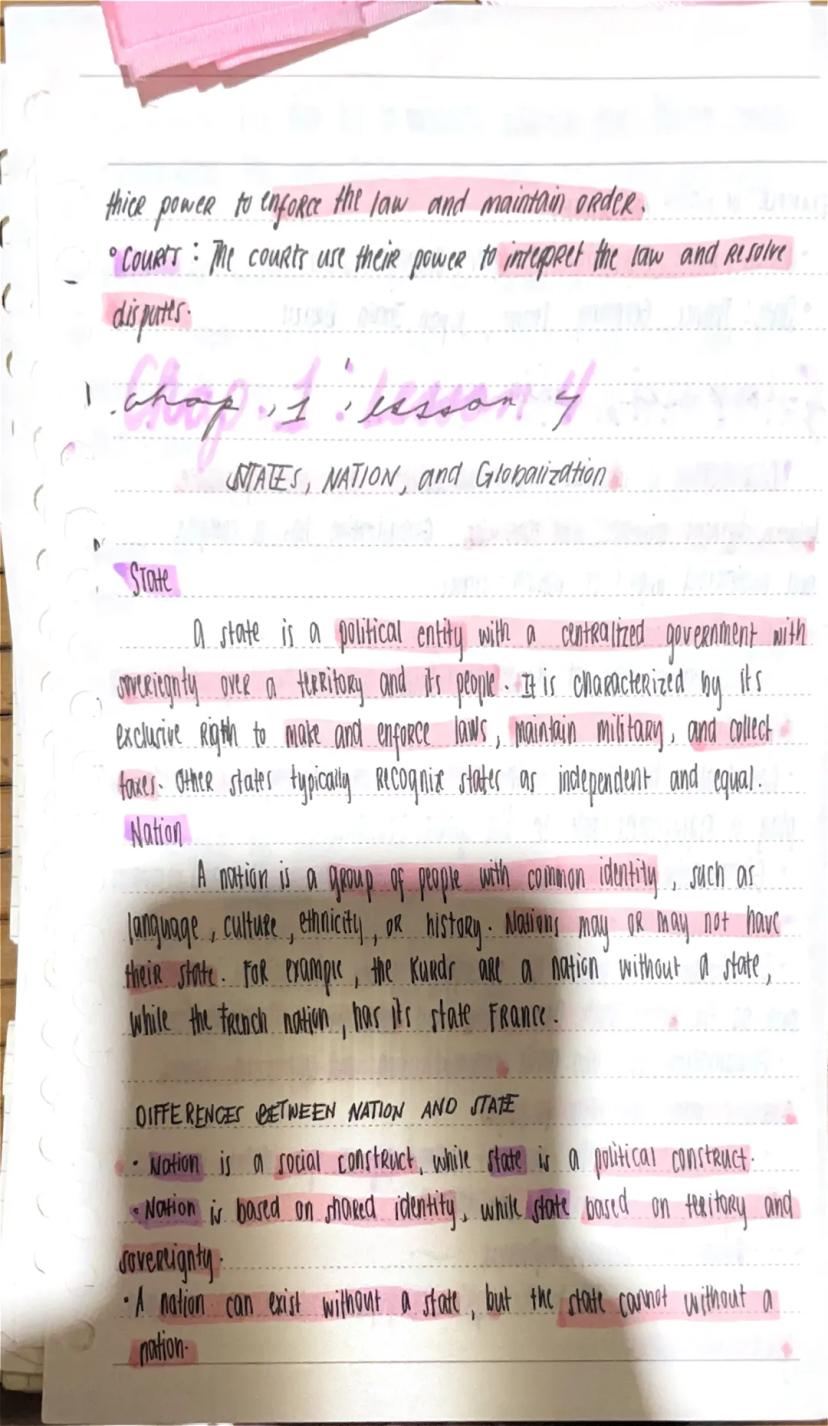 thier power to enforce the law and maintain order.
°Courts : The courts use their power to interpret the law and resolve
disputes.
Chap. 1 : Lesson 4
STATES, NATION, and Globalization
State
A state is a political entity with a centralized government with
soveriegnty over a territory and its people. It is characterized by its
exclusive rigth to make and enforce laws, maintain military, and collect
taxes. Other states typically recognize states as independent and equal.
Nation
A nation is a group of people with common identity, such as
language, culture, ethnicity, or history. Nations may or may not have
their state. For example, the Kurds are a nation without a state,
while the French nation, has its state France.
DIFFERENCES BETWEEN NATION AND STATE
• Nation is a social construct, while state is a political construct.
• Nation is based on shared identity, while state based on teritory and
sovereignty.
• A nation can exist without a state, but the state cannot without a
nation.